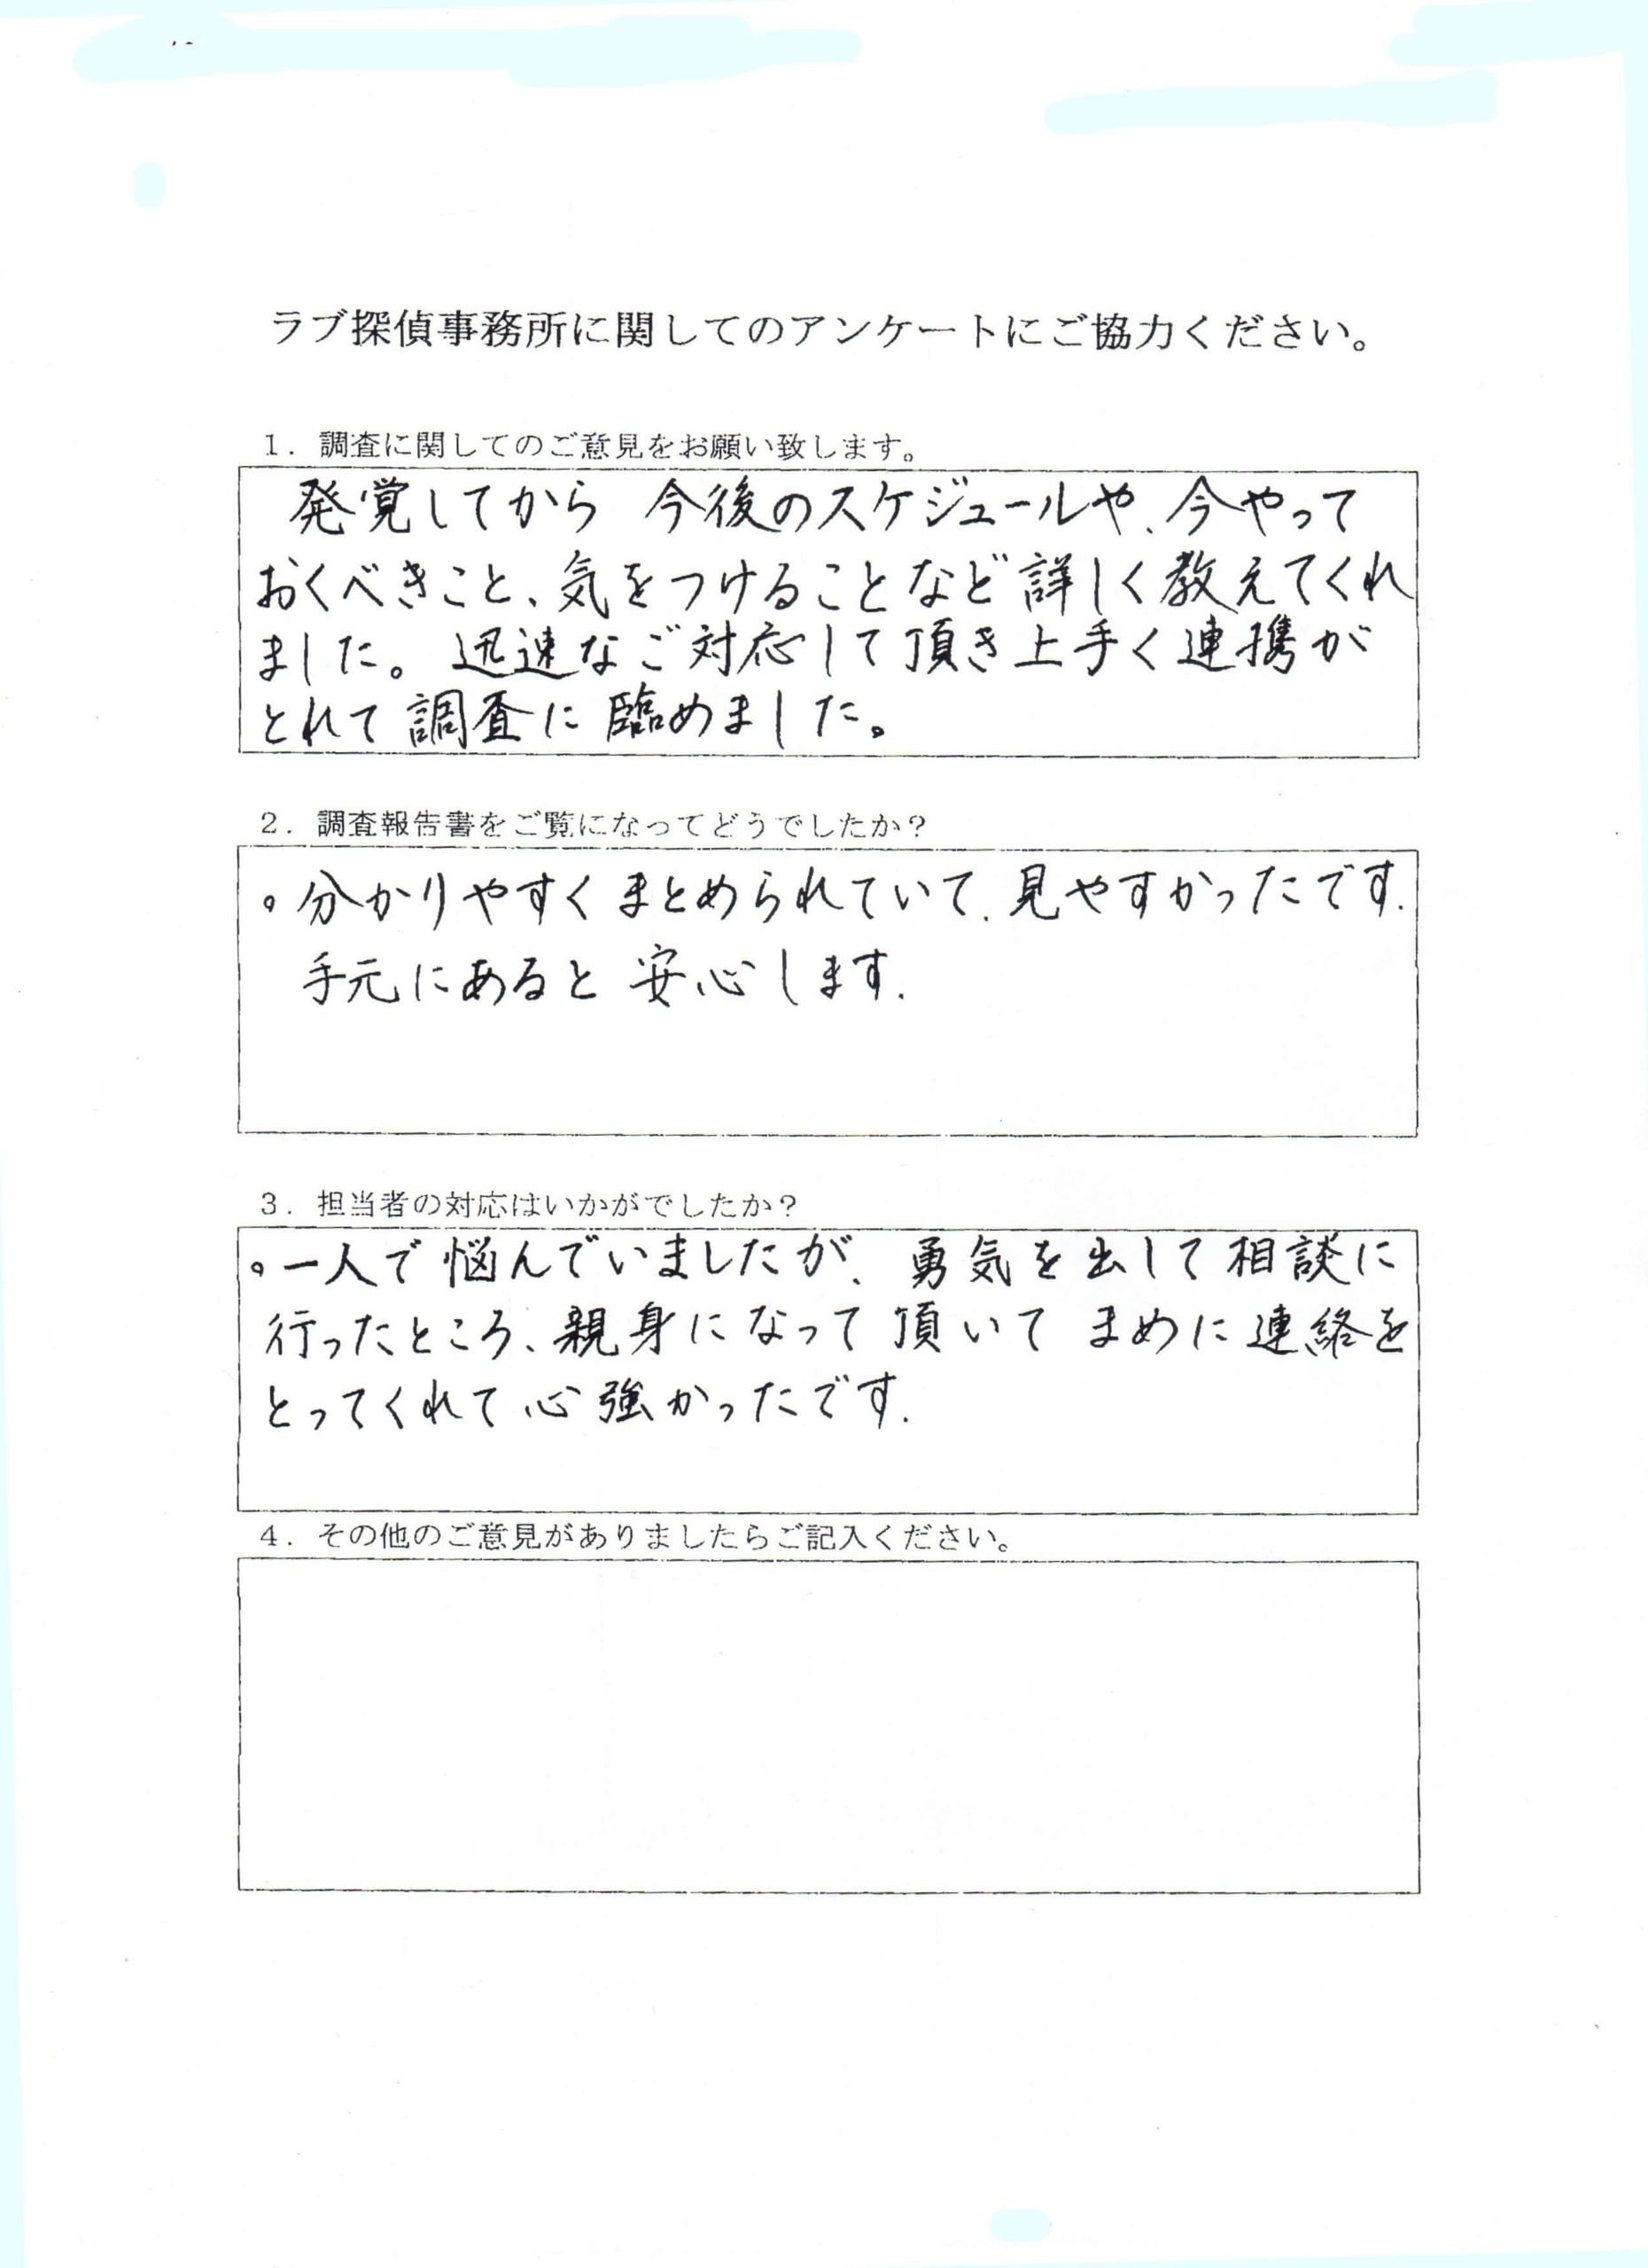 ラブ探偵事務所に関してのアンケートにご協力ください。
1. 調査に関してのご意見をお願い致します。
発覚してから 今後のスケジュールや、今やって
おくべきこと、気をつけることなど詳しく教えてくれ
ました。迅速なご対応して頂き上手く連携が
とれて調査に臨めました。
2. 調査報告書をご覧になってどうでしたか？
。分かりやすくまとめられていて、見やすかったです.
手元にあると安心します.
3. 担当者の対応はいかがでしたか？
。一人で悩んでいましたが、勇気を出して相談に
行ったところ、親身になって頂いてまめに連絡を
とってくれて心強かったです.
4. その他のご意見がありましたらご記入ください。